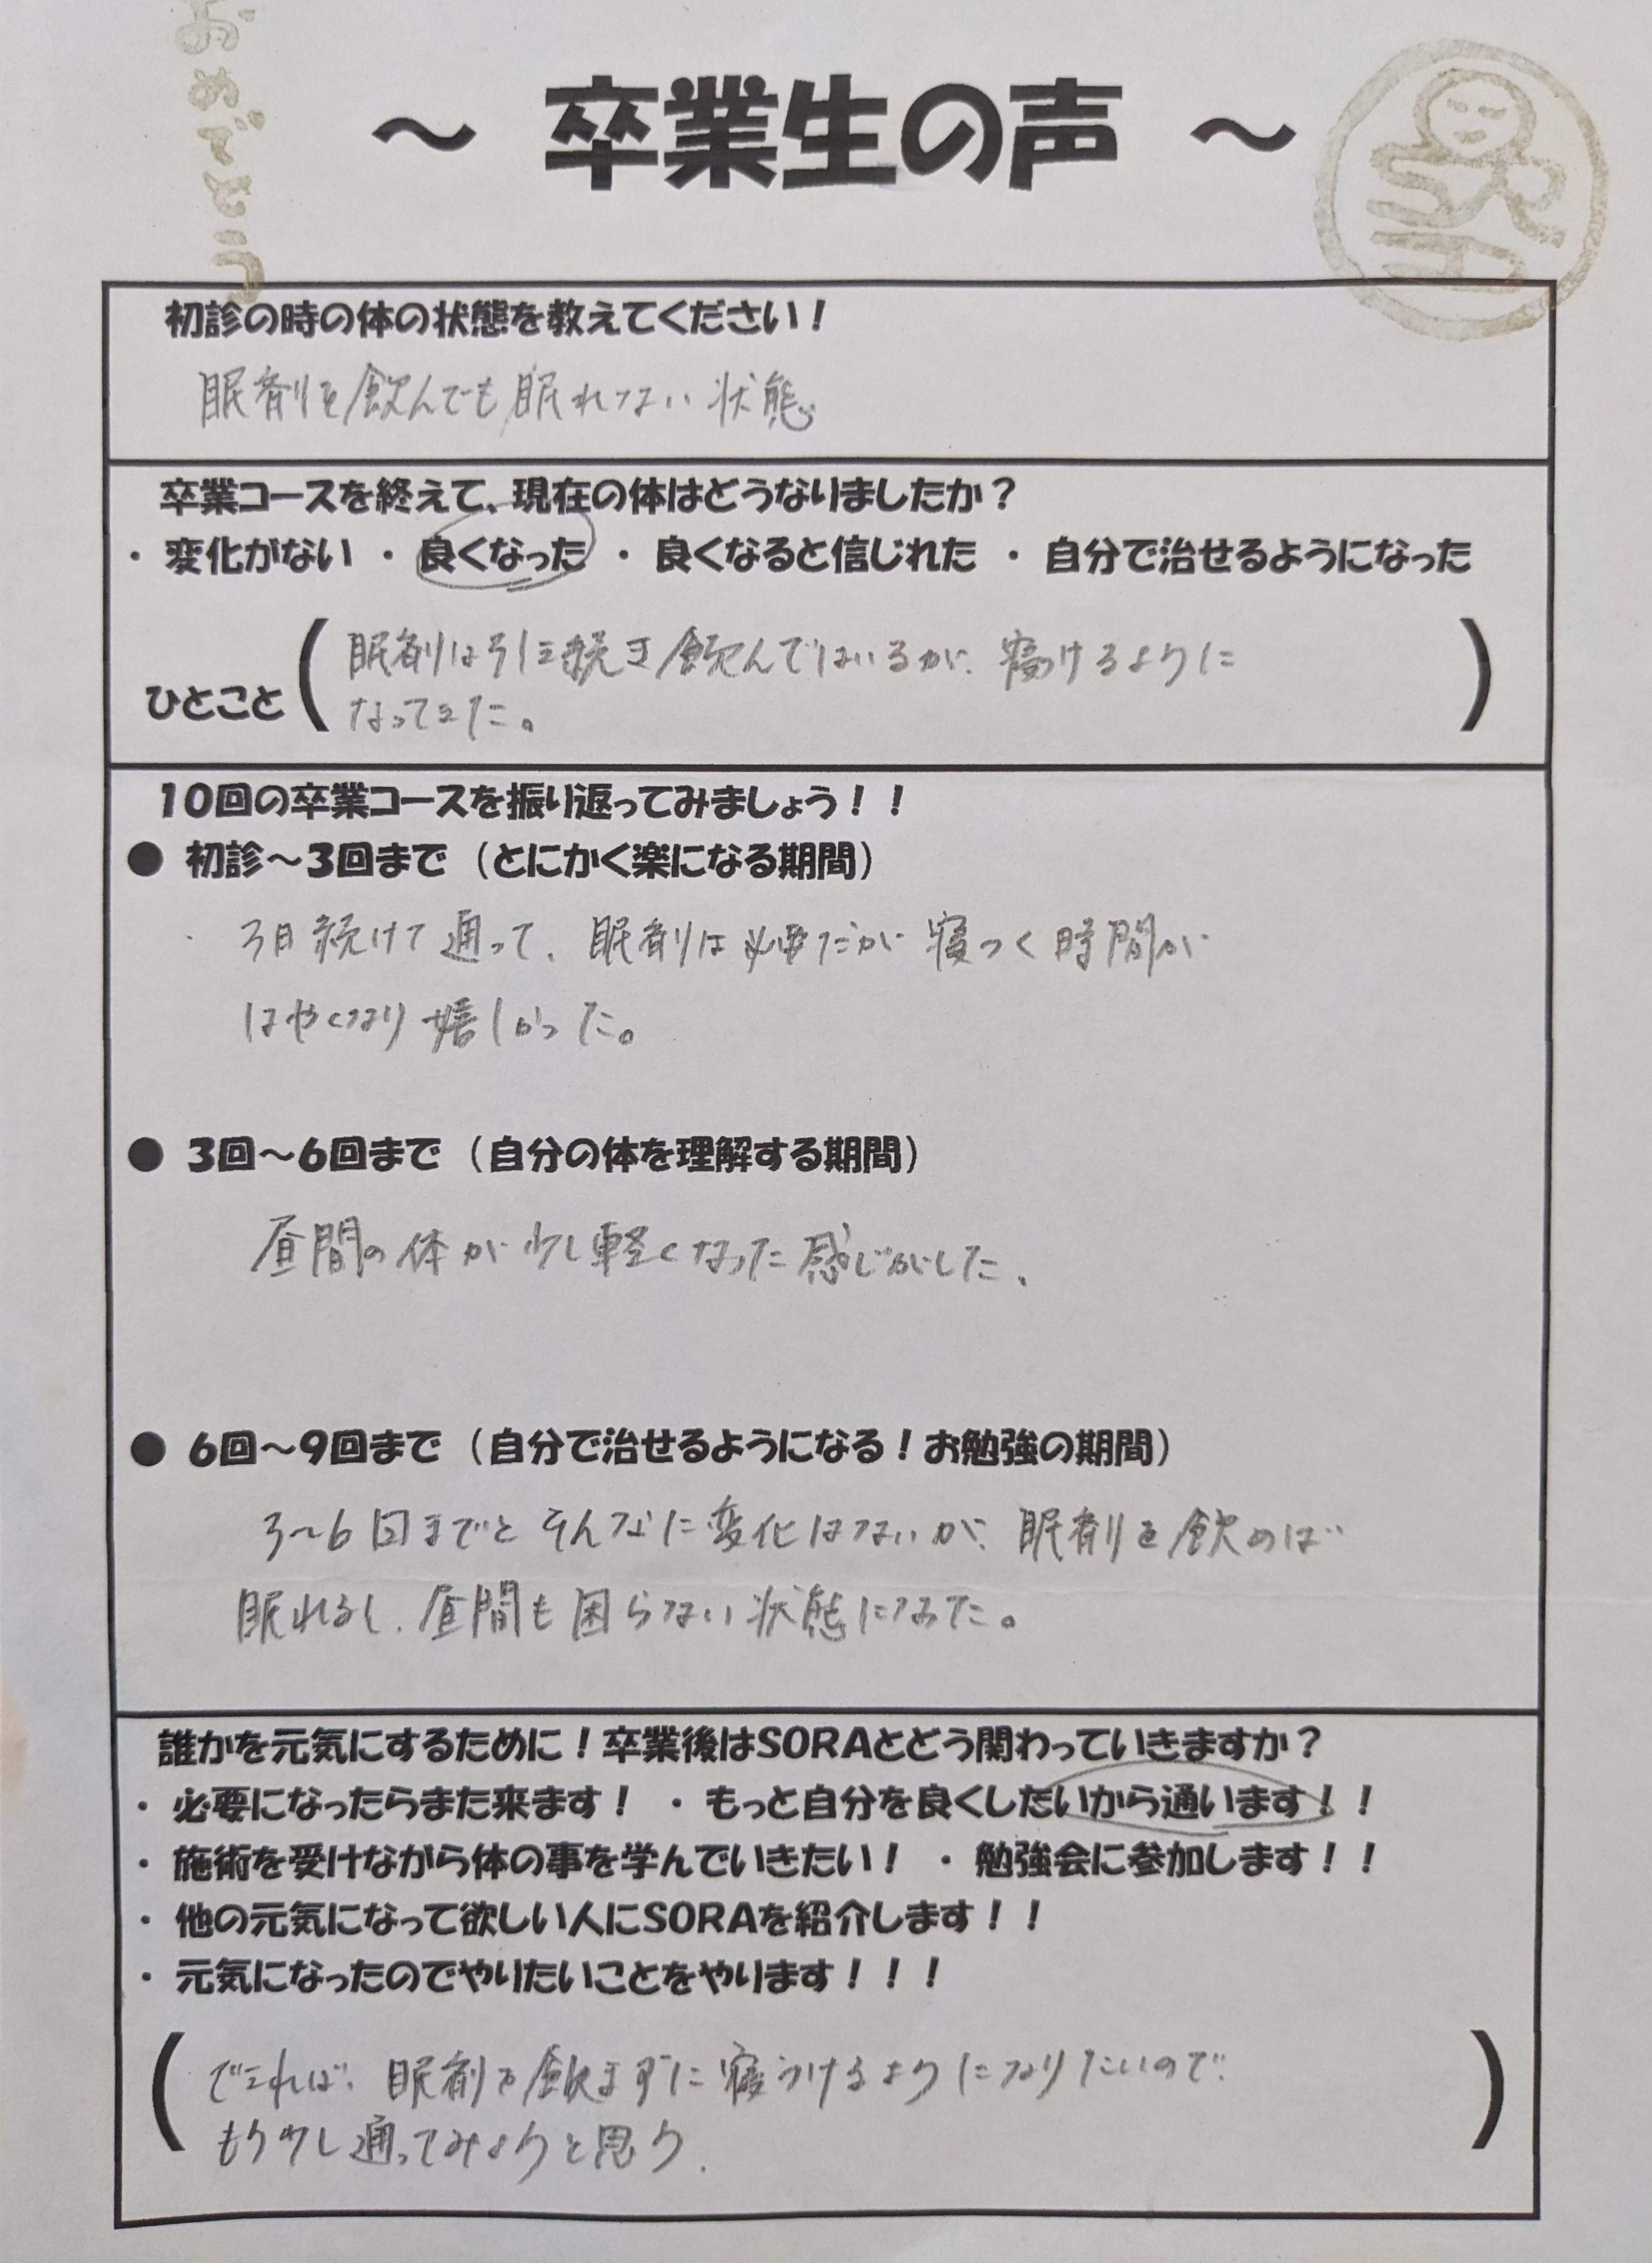 おめでとう
～ 卒業生の声 ～
初診の時の体の状態を教えてください！
眠剤を飲んでも眠れない状態
卒業コースを終えて、現在の体はどうなりましたか？
・変化がない ・良くなった ・良くなると信じれた ・自分で治せるようになった
眠剤は引き続き飲んではいるが、寝つけるように
ひとこと（ なってきた。 ）
10回の卒業コースを振り返ってみましょう！！
● 初診～3回まで（とにかく楽になる期間）
3日続けて通って、眠剤は必要だが寝つく時間が
はやくなり嬉しかった。
● 3回～6回まで（自分の体を理解する期間）
昼間の体が少し軽くなった感じがした、
● 6回～9回まで（自分で治せるようになる！お勉強の期間）
3～6回までとそんなに変化はないが、眠剤を飲めば
眠れるし、昼間も困らない状態になった。
誰かを元気にするために！卒業後はSORAとどう関わっていきますか？
・必要になったらまた来ます！ ・もっと自分を良くしたいから通います！！
・施術を受けながら体の事を学んでいきたい！ ・勉強会に参加します！！
・他の元気になって欲しい人にSORAを紹介します！！
・元気になったのでやりたいことをやります！！！
（ できれば、眠剤を飲まずに寝つけるようになりたいので、
もう少し通ってみようと思う. ）